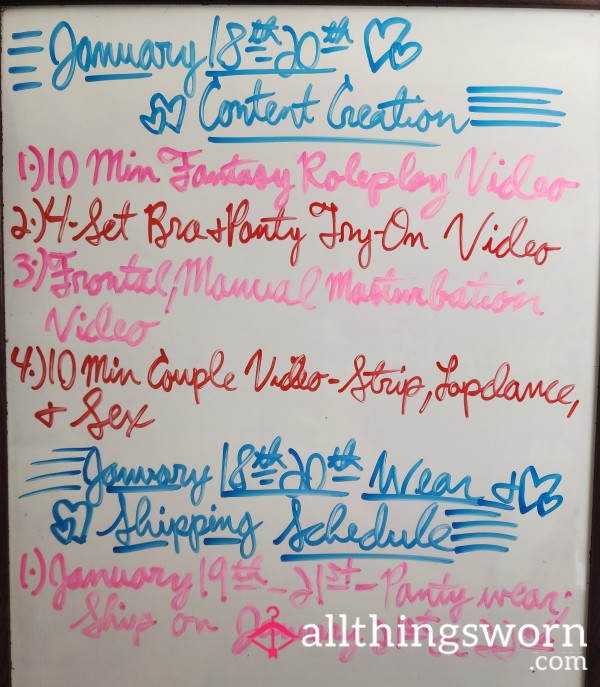 January 18th-20th
Content Creation
1.) 10 Min Fantasy Roleplay Video
2.) 4-Set Bra + Panty Try-On Video
3.) Frontal, Manual Masturbation
Video
4.) 10 Min Couple Video - Strip, Lapdance,
+ Sex
January 18th-20th Wear +
Shipping Schedule
1.) January 19th - 21st - Panty wear;
Ship on January
allthingsworn
.com